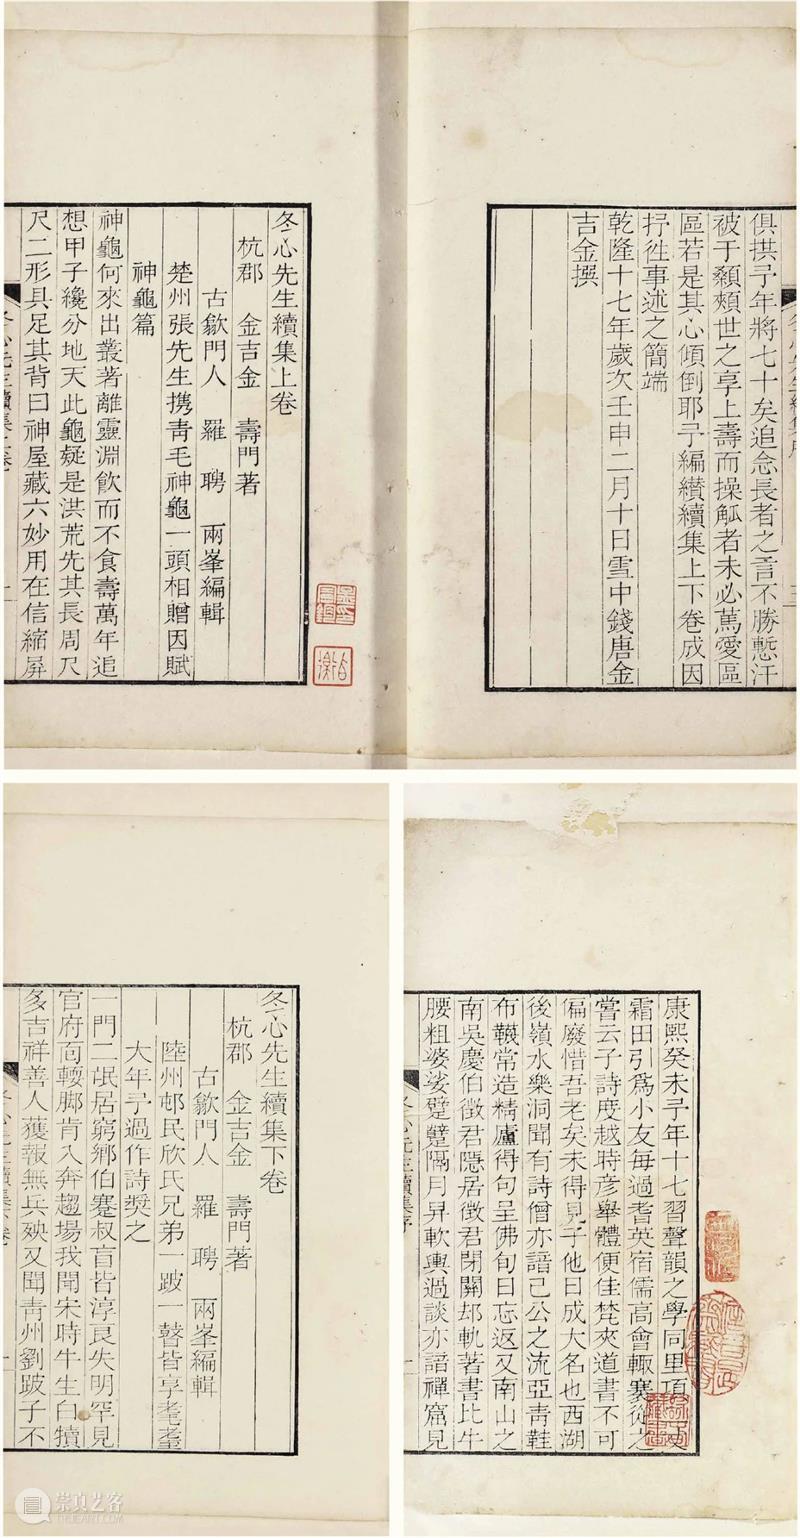 俱拱予年將七十矣追念長者之言不勝慙汗
被于顙頰世之享上壽而操觚者未必篤愛區
區若是其心傾倒耶予編纉續集上下卷成因
抒徃事述之簡端
乾隆十七年歲次壬申二月十日雪中錢唐金
吉金撰
冬心先生續集上卷
杭郡 金吉金 壽門著
古歙門人 羅聘 兩峯編輯
楚州張先生携靑毛神龜一頭相贈因賦
神龜篇
神龜何來出叢著離靈淵飮而不食壽萬年追
想甲子纔分地天此龜疑是洪荒先其長周尺
尺二形具足其背曰神屋藏六妙用在信縮屏
冬心先生續集上卷
康熙癸未予年十七習聲韻之學同里項
霜田引爲小友每過耆英宿儒高會輙褰從之
嘗云子詩度越時彦舉體便佳梵夾道書不可
偏廢惜吾老矣未得見子他日成大名也西湖
後嶺水樂洞聞有詩僧亦諳己公之流亞靑鞋
布韈常造精廬得句呈佛旬日忘返又南山之
南吳慶伯徵君隱居徵君閉關却軌著書比牛
腰粗婆娑躄躄隔月昇軟輿過談亦諳禪窟見
冬心先生續集序
冬心先生續集下卷
杭郡 金吉金 壽門著
古歙門人 羅聘 兩峯編輯
陸州邨民欣氏兄弟一跛一瞽皆享耄耋
大年予過作詩奬之
一門二氓居窮鄉伯蹇叔盲皆淳良失明罕見
官府面輭脚肯入奔趨場我聞宋時牛生白犢
多吉祥善人獲報無兵殃又聞靑州劉跛子不
崇真艺客